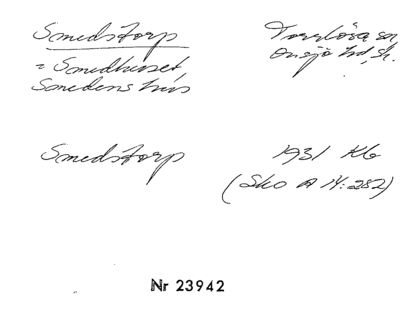 Smedstorp
= Smedhuset,
Smedens hus
Torrlösa sn
Onsjö hd, Sk.
Smedstorp
1931 Kb
(Sko A 14:282)
Nr 23942